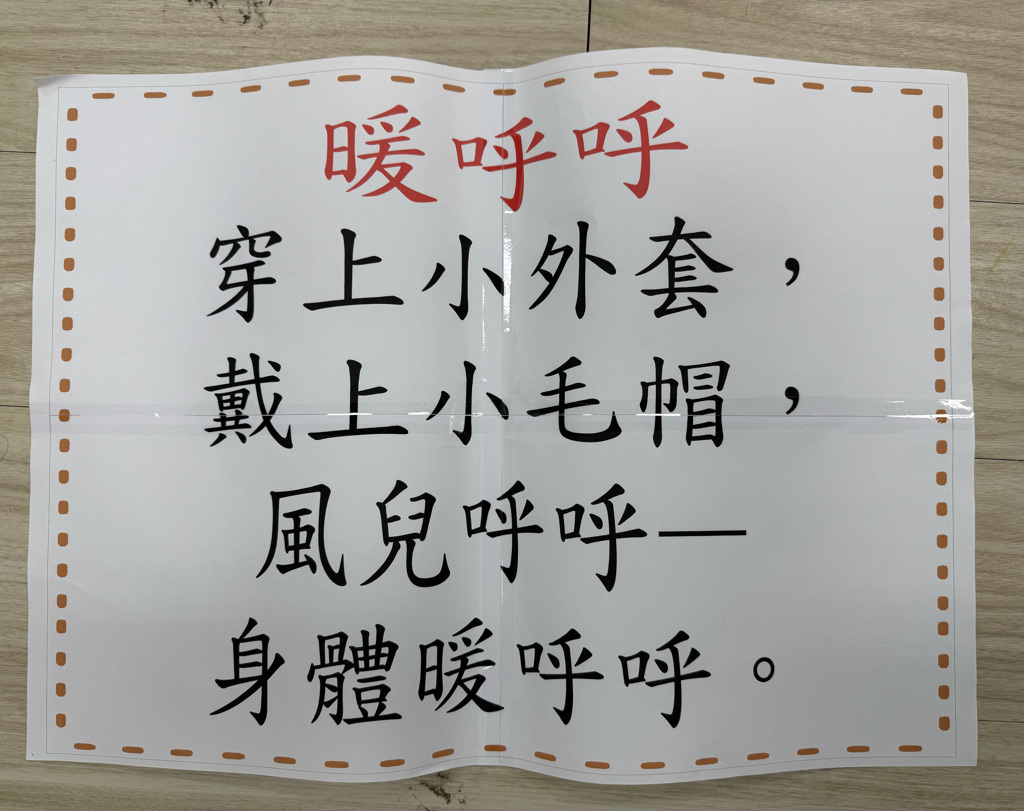 暖呼呼
穿上小外套，
戴上小毛帽，
風兒呼呼—
身體暖呼呼。